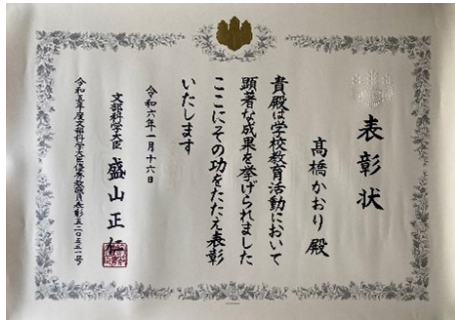 表彰状
髙橋かおり 殿
貴殿は学校教育活動において
顕著な成果を挙げられました
ここにその功をたたえ表彰
いたします
令和六年一月十六日
文部科学大臣 盛山正仁
令和五年度文部科学大臣優秀教職員表彰五二〇五三一号